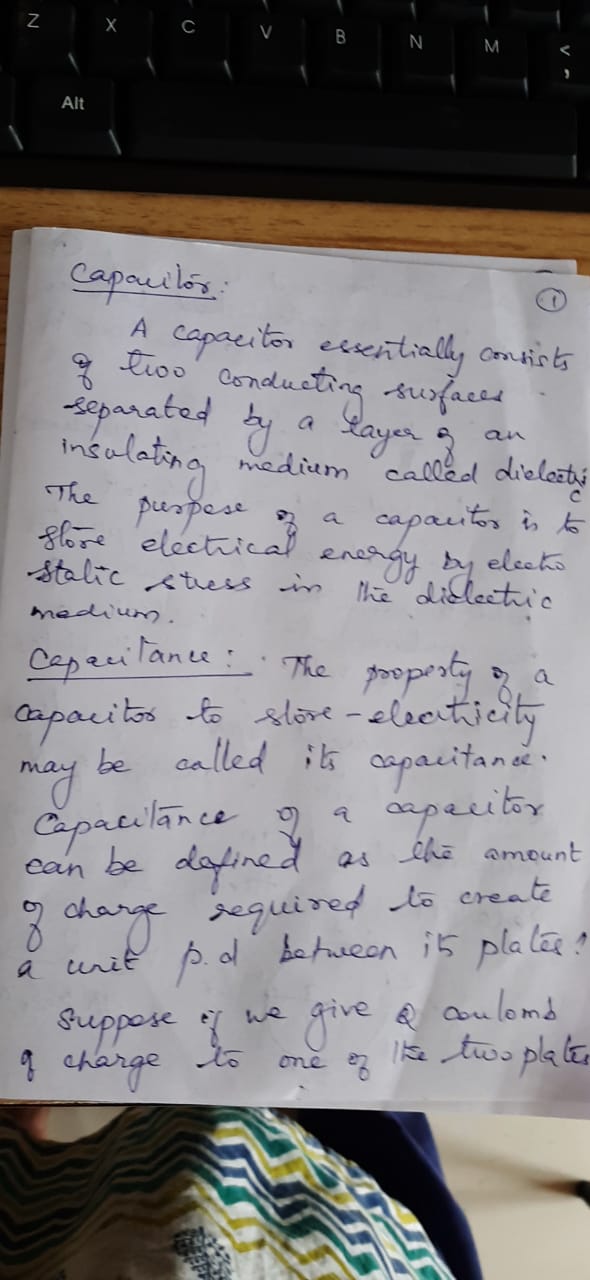 Z X C V B N M < ,
Alt
Capacitor: 1
A capacitor essentially consists
of two conducting surfaces
separated by a layer of an
insulating medium called dielectric
The purpose of a capacitor is to
store electrical energy by electro
static stress in the dielectric
medium.
Capacitance: The property of a
capacitor to store-electricity
may be called its capacitance.
Capacitance of a capacitor
can be defined as the amount
of charge required to create
a unit p.d between its plates.
Suppose if we give Q coulomb
of charge to one of the two plates